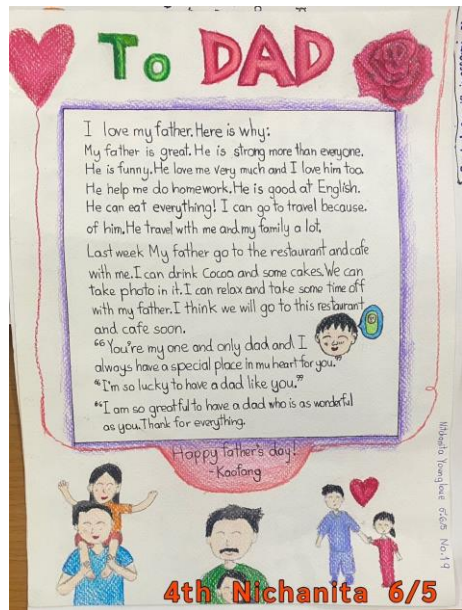 To DAD
I love my father. Here is why:
My father is great. He is strong more than everyone.
He is funny. He love me very much and I love him too.
He help me do homework. He is good at English.
He can eat everything! I can go to travel because.
of him. He travel with me and my family a lot.
Last week My father go to the restaurant and cafe
with me. I can drink Cocoa and some cakes. We can
take photo in it. I can relax and take some time off
with my father. I think we will go to this restaurant
and cafe soon.
“You're my one and only dad and I
always have a special place in my heart for you.”
“I'm so lucky to have a dad like you.”
“I am so greatful to have a dad who is as wonderful
as you. Thank for everything.
Happy father's day!
-Kaofang
No.19
4th Nichanita 6/5